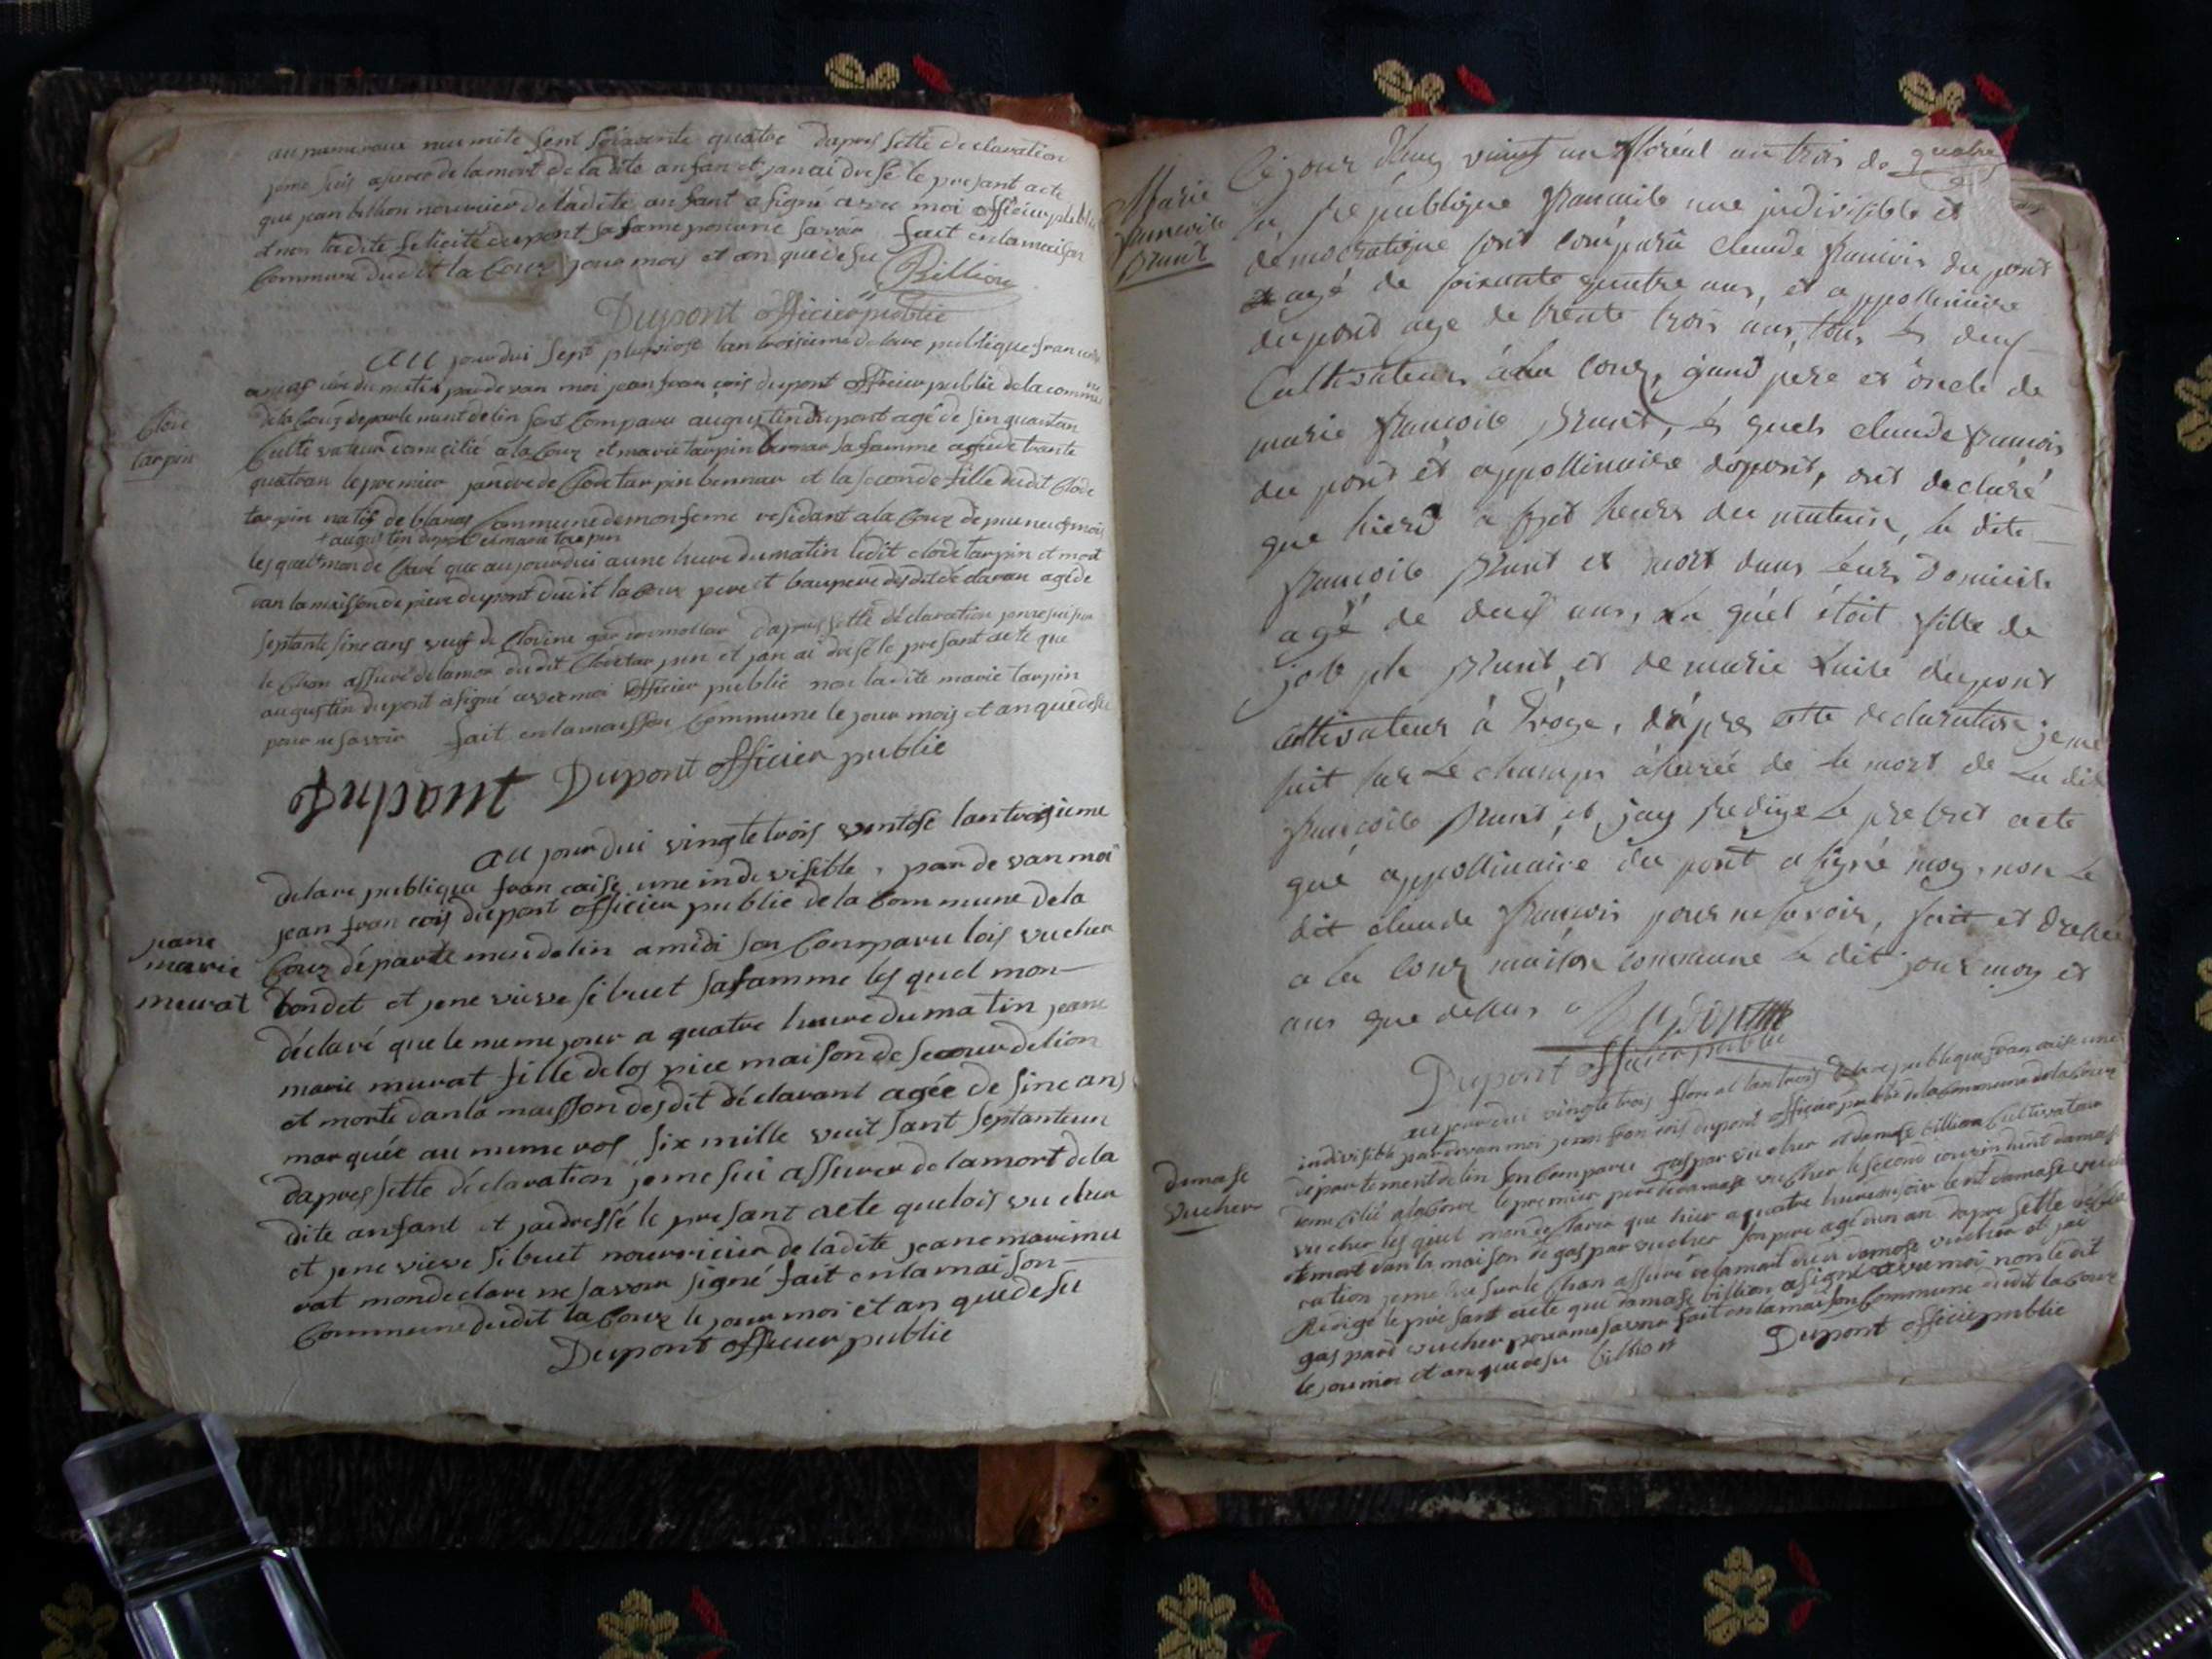 au numerau mile sent soisente quatre dapres sette declaration
jeme suis asurer de la mort de la dite anfan et jan ai dresé le presant acte
que jean billion nouricier de la dite anfant a signé avec moi officier public
et non la dite felicité dupont sa fame pour ne savoir fait en la maison
Commune du dit la Couz jour mois et an que desu Billion
Dupont officier public
au jourdui sept pluviose lan troisieme de la re publique francaise
du matin par de van moi jean fran çois dupont officier public de la commune
Clode
tarpin
de la Couz departe ment de lin sont Comparu augustin dupont agé de sin quantan
Culti vateur domicilié a la Couz et marie tarpin bernar sa famme agée de trante
quatran le premier jandre de Clode tarpin bernar et la seconde fille du dit Clode
tarpin natif de blanas Commune de mon ferme residant a la Couz depui neuf mois
+ augustin dupont et marie tarpin
les quel mon de Claré que aujourdui a une hure du matin ledit clode tarpin et mort
dan la maison de piere dupont dudit la Couz pere et baupere des dit declaran agé de
septante sinc ans veuf de Clodine dapres sette déclaration je me sui sur
le Chan assuré de la mor du dit Clode tar pin et jan ai dresé le presant acte que
augustin dupont a signé avec moi officier public non la dite marie tarpin
pour ne savoir fait en la maisson Commune le jour mois et an que desu
Dupont Dupont officier public
au jour dui vingt e trois vantose lan troisieme
de la re publique fran caise une in de visible, par de van moi
jean fran cois dupont officier public de la Com mune de la
jane
marie
murat
Couz départe men de lin a midi son Comparu lois vucher
bondet et jene vieve si buet sa famme les quel mon
déclaré que le meme jour a quatre heure du ma tin jeane
marie murat fille de los pice maison de secour de lion
et morte dan la maisson des dit déclarant agée de sinc ans
marquée au nume ros six mille vuit sant septanteun
dapres sette déclaration je me sui assurer de la mort de la
dite anfant et jai dressé le presant acte que lois vu cher
et jene vieve si buet nourricier de ladite jeane marie mu
rat mon declare ne savoir signé fait en la mai son
Commune du dit la Couz le jour moi et an que desu
Dupont officier public
Marie
francoise
brunt
Ce jour dhuy vingt un floréal an trois de
la république francaise une indivisible et
démocratique sont comparu claude francois du pont
agé de soixante quatre ans, et appollinaire
du pont age de trente trois ans, tous les deux
Cultivateurs à la Couz, grand père et oncle de
marie francoise brunt, les quels claude francois
du pont et appollinaire dupont, ont declaré
que hierd a sept heures du mattin, la dite
francoise brunt et mort dans leurs domicile
agé de deux ans, la quel étoit fille de
joseph brunt, et de marie Luise dupont
cultivateurs à , d'apres cette declaration je me
suit sur le champs assurée de la mort de la dite
francoise brunt et jay redigé le present acte
qué appollinaire du pont a signé moy, non le
dit claude francois pour ne savoir, fait et dressé
a la Couz maison commune le dit jour moy et
ans que dessus Dupont
Dupont officier public
aujour dui vingt e trois flore al lan trois de la re publique fran caise une
indivisible par devan moi jean fran cois dupont officier public de la Commune de la Couz
damase
vucher
département de lin son Comparu gaspar vucher et damase billion Cultivateur
domicilié a la Couz le premier pere de damase vucher le second couzin dudit damase
vucher les quel mon de Claré que hier a quatre hure du soir le dit damase vucher
et mort dan la maison de gaspar vucher son pere agé dun an dapre sette décla
ration je me sui sur le Chan assuré de la mort du dit damase vucher et jai
Redigé le présant acte que damase billion a signé avec moi non le dit
gaspard vucher pour ne savoir fait en la maison Commune du dit la Couz
le jour moi et an que desu billion Dupont officier public